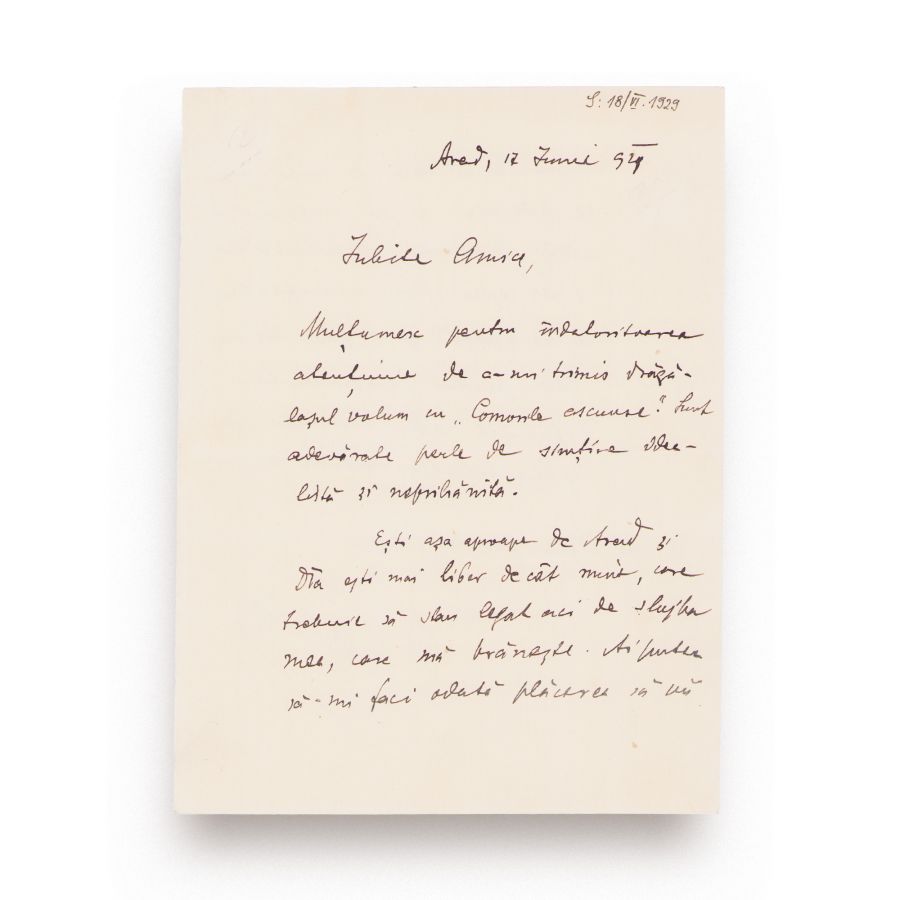 S: 18/VI.1929
Arad, 17 Iunie 929
Iubite Amice,
Mulțumesc pentru îndatoritoarea
atențiune de a-mi trimis drăgă-
lașul volum cu „Comorile ascunse". Sunt
adevărate perle de simțire idea-
listă și neprihănită.
Ești așa aproape de Arad și
Dta ești mai liber decât mine, care
trebuie să stau legat aci de slujba
mea, care mă brănește. Ai putea
să-mi faci odată plăcerea să vă